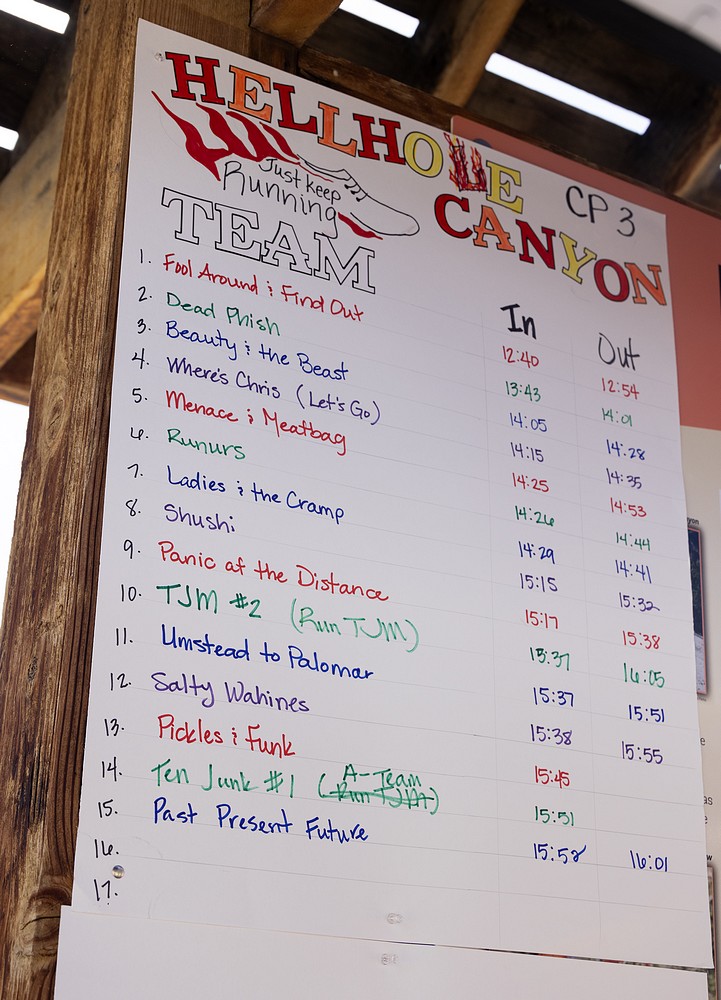 HELLHOLE
CANYON
CP 3
Just keep
Running
TEAM
In
Out
1. Fool Around & Find Out 12:40 12:54
2. Dead Phish 13:43 14:01
3. Beauty & the Beast 14:05 14:28
4. Where's Chris (Let's Go) 14:15 14:35
5. Menace & Meatbag 14:25 14:53
6. Runurs 14:26 14:44
7. Ladies & the Cramp 14:29 14:41
8. Shushi 15:15 15:32
9. Panic at the Distance 15:17 15:38
10. TJM #2 (Run TJM) 15:37 16:05
11. Umstead to Palomar 15:37 15:51
12. Salty Wahines 15:38 15:55
13. Pickles & Funk 15:45
14. Ten Junk #1 (A-Team Run TJM) 15:51
15. Past Present Future 15:58 16:01
16.
17.